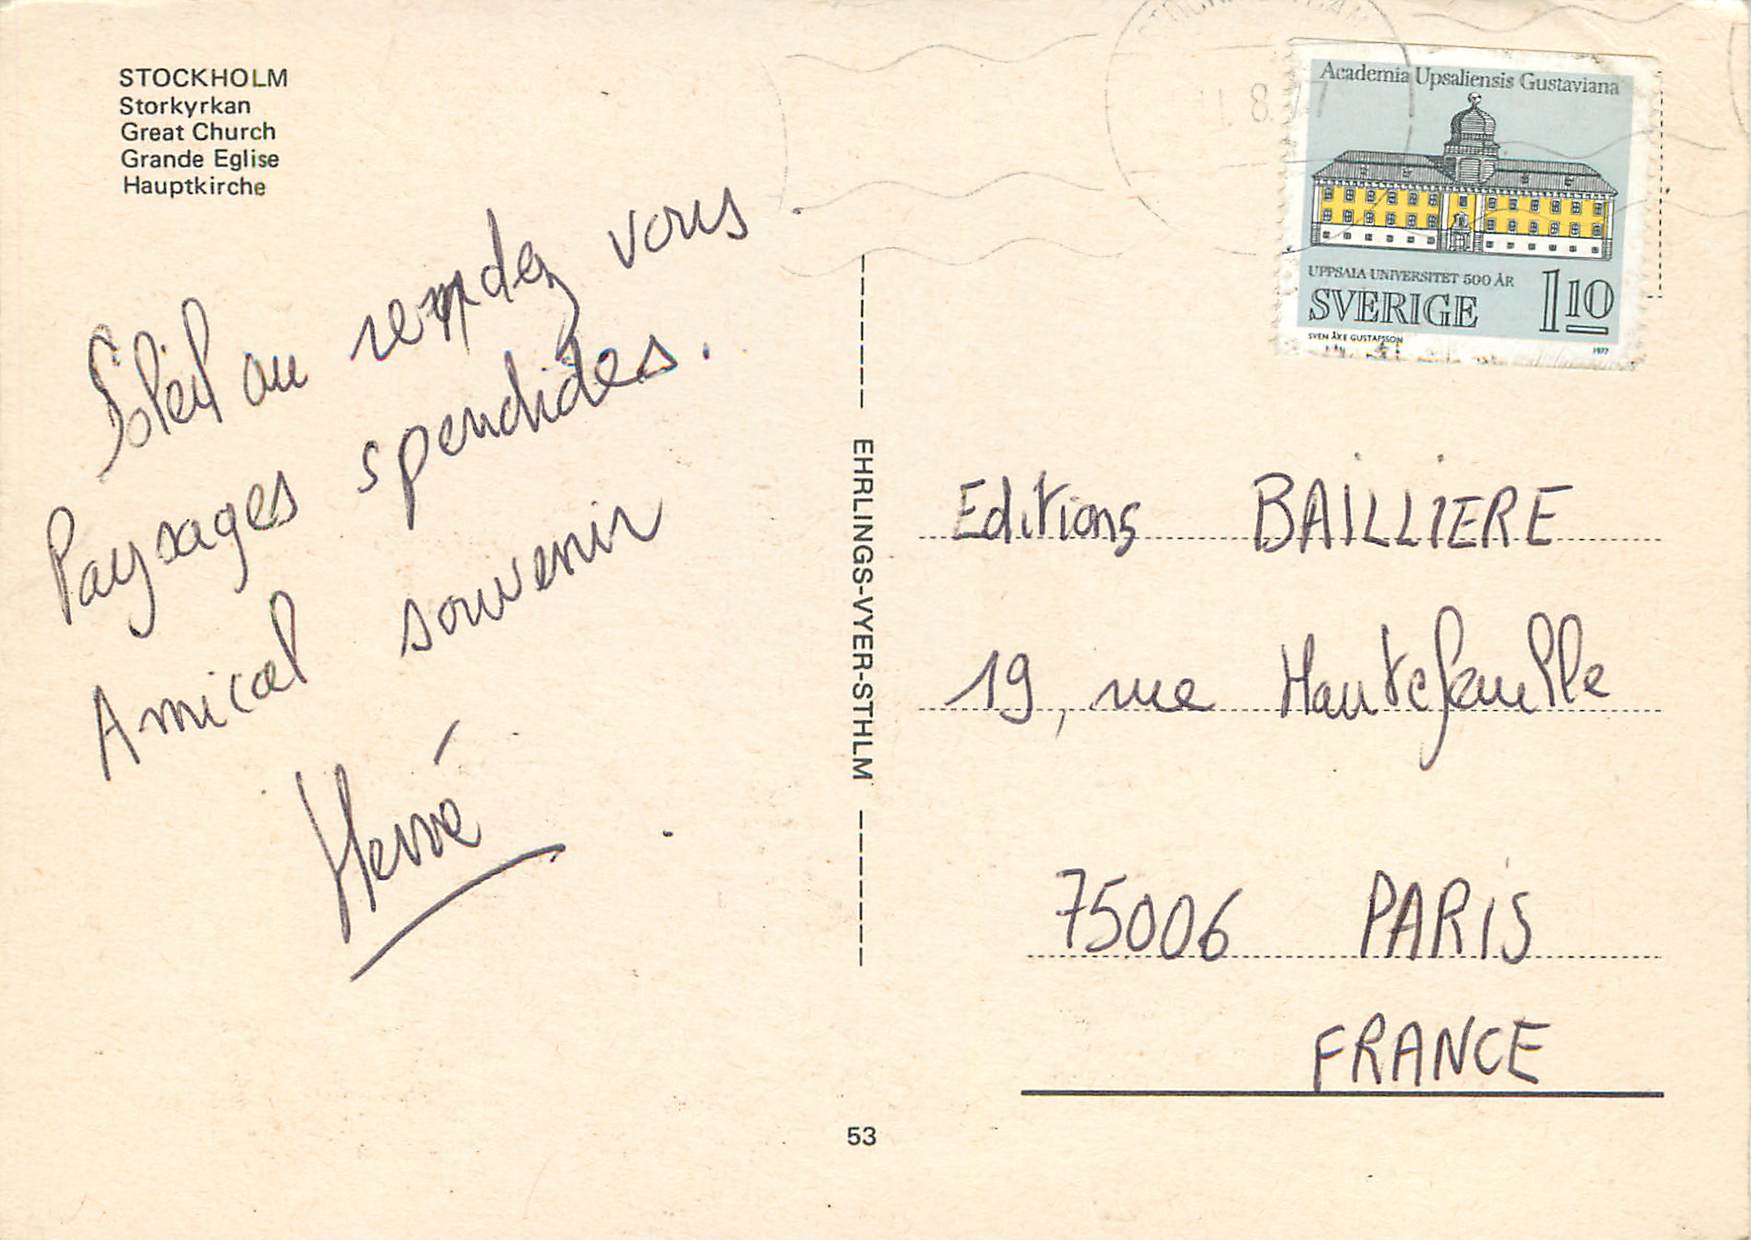 STOCKHOLM
Storkyrkan
Great Church
Grande Eglise
Hauptkirche
Soleil au rendez vous
Paysages spendides.
Amical souvenir
Hervé
EHRLINGS-VYER-STHLM
53
Academia Upsaliensis Gustaviana
UPPSALA UNIVERSITET 500 ÅR
SVERIGE 1 10
SVEN ÅKE GUSTAFSSON 1977
Editions BAILLIERE
19, rue Hautefeuille
75006 PARIS
FRANCE